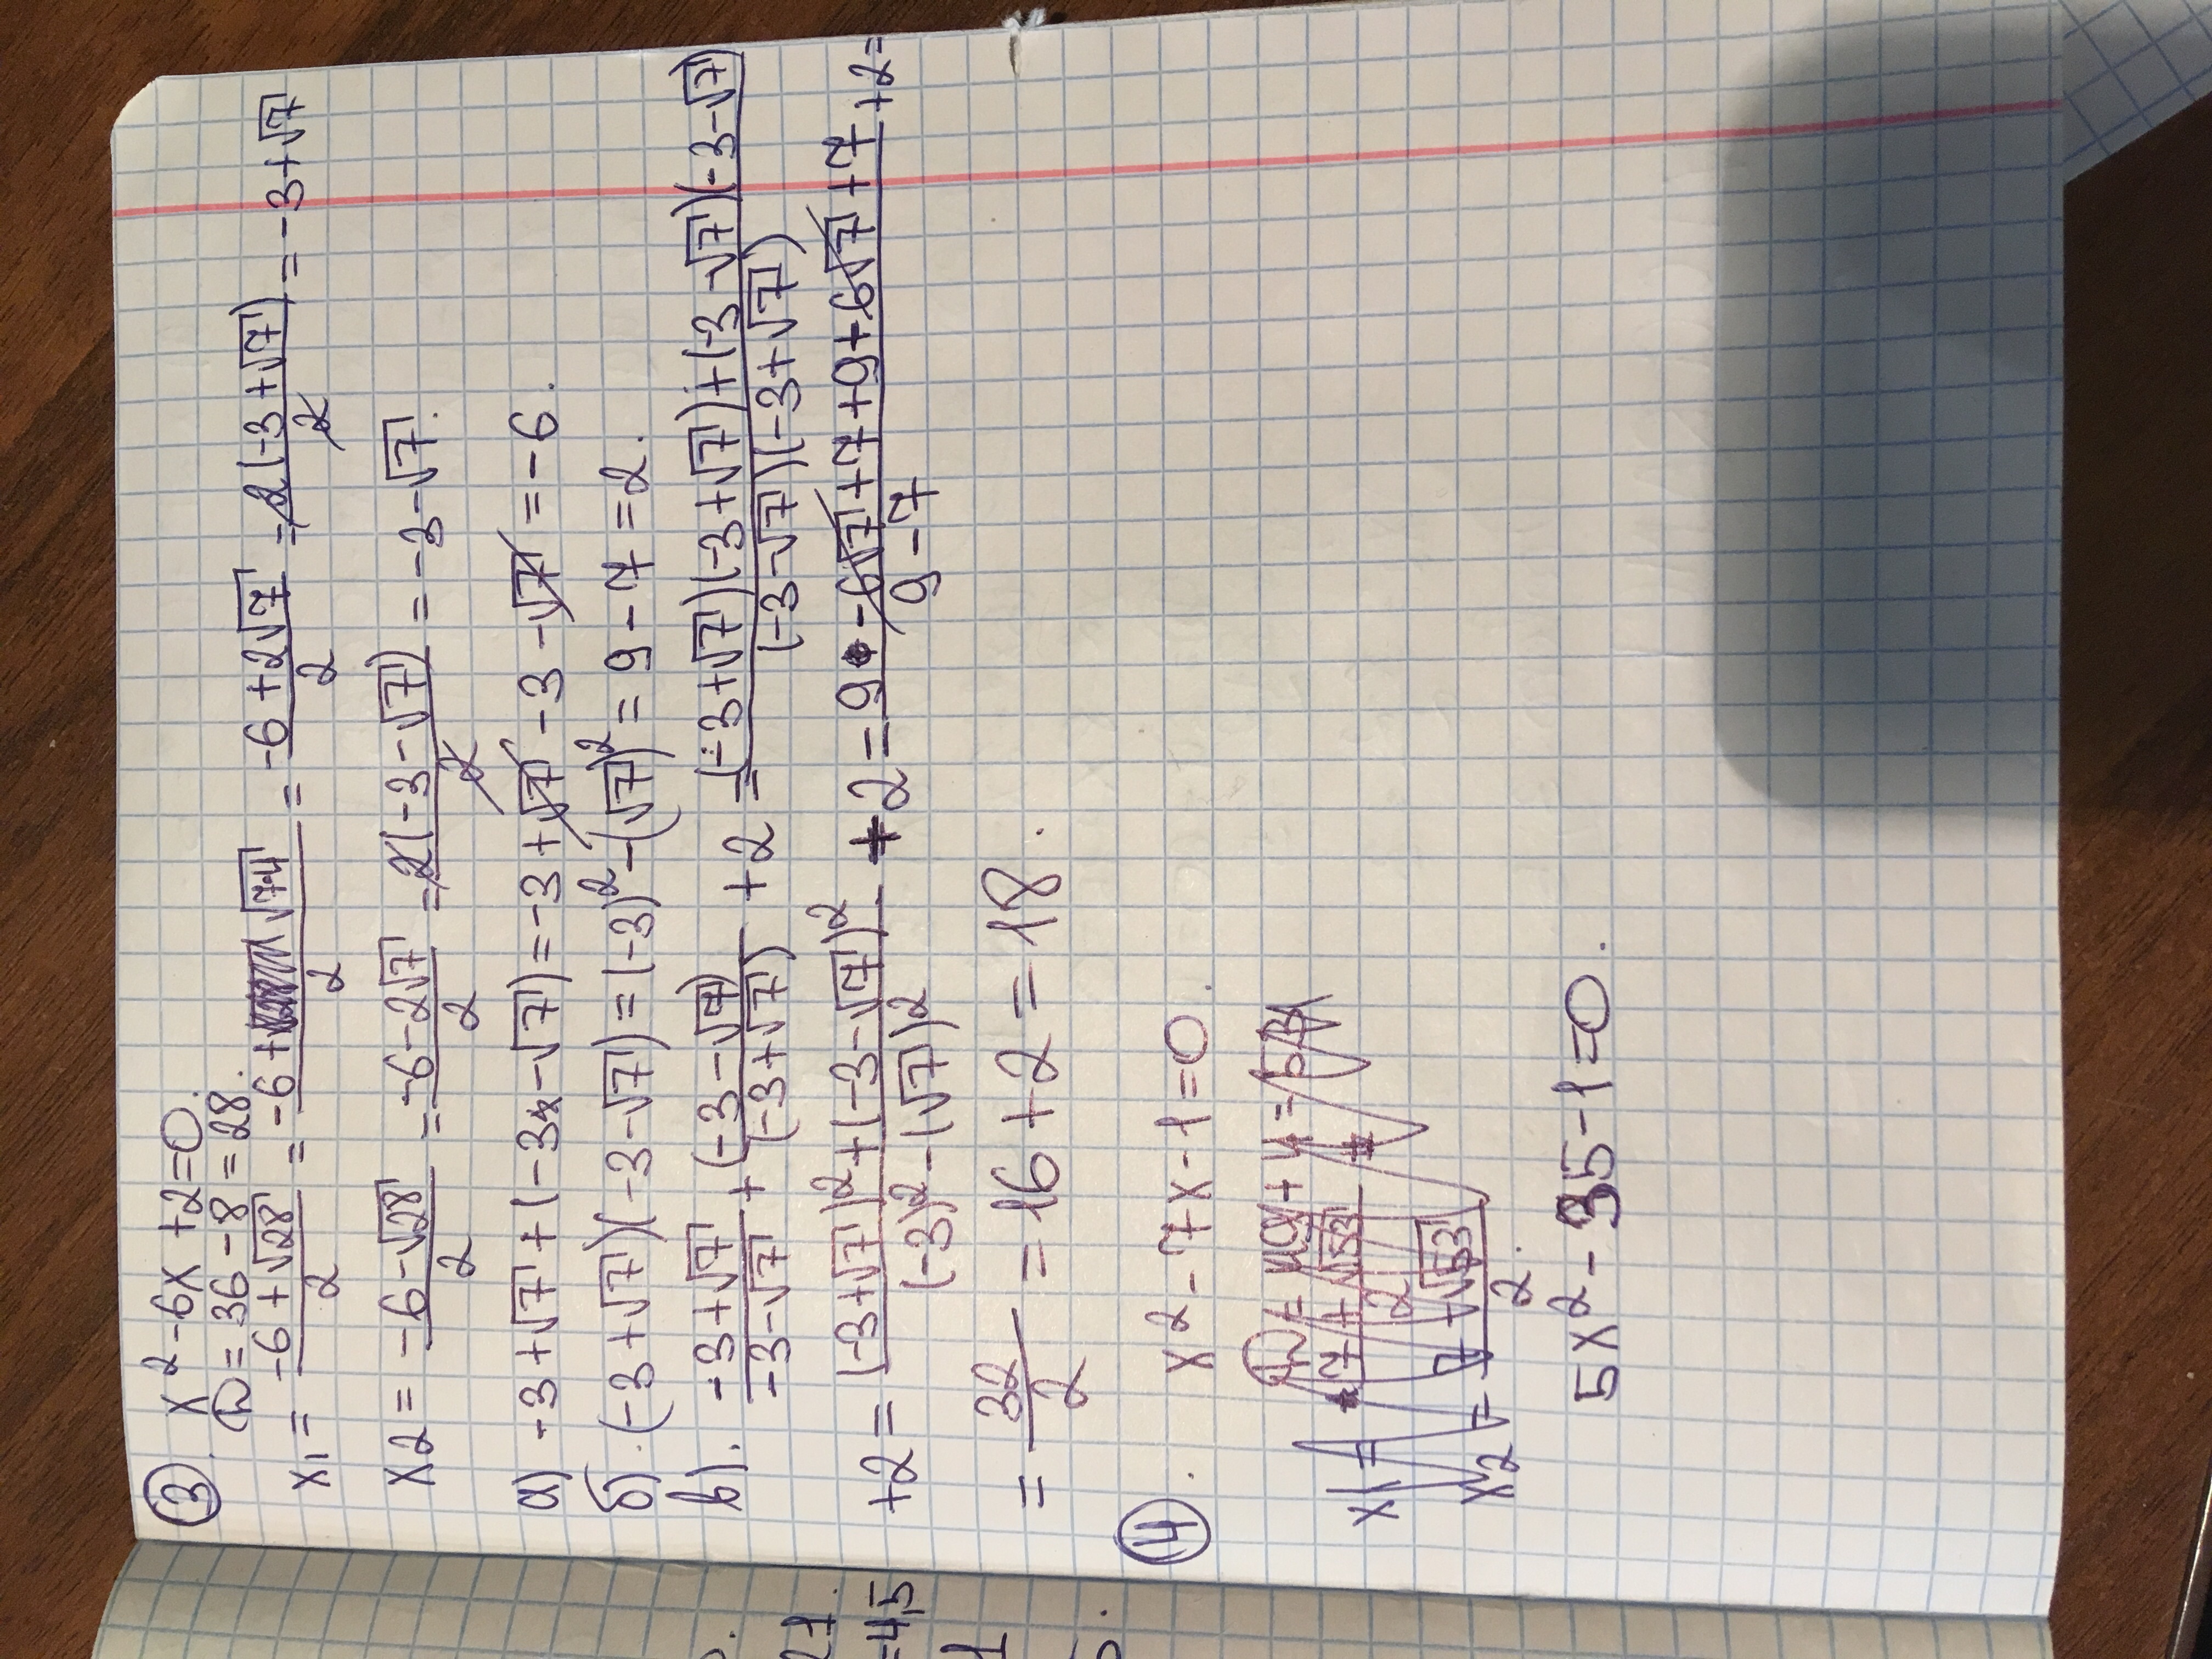 ③. x² - 6x + 2 = 0.
D = 36 - 8 = 28.
x₁ = (-6 + √28)/2 = (-6 + √7·4)/2 = (-6 + 2√7)/2 = 2(-3 + √7)/2 = -3 + √7
x₂ = (-6 - √28)/2 = (-6 - 2√7)/2 = 2(-3 - √7)/2 = -3 - √7.
а) -3 + √7 + (-3 - √7) = -3 + √7 - 3 - √7 = -6.
б). (-3 + √7)(-3 - √7) = (-3)² - (√7)² = 9 - 7 = 2.
в). (-3 + √7)/(-3 - √7) + (-3 - √7)/(-3 + √7) + 2 = ((-3 + √7)(-3 + √7) + (-3 - √7)(-3 - √7))/((-3 - √7)(-3 + √7))
+2 = ((-3 + √7)² + (-3 - √7)²)/((-3)² - (√7)²) + 2 = (9 - 6√7 + 7 + 9 + 6√7 + 7)/(9 - 7) + 2 =
= 32/2 = 16 + 2 = 18.
④. x² - 7x - 1 = 0.
D = 49 + 4 = 53
x₁ = (7 + √53)/2
x₂ = (7 + √53)/2.
5x² - 35 - 1 = 0.
21.
=45
1